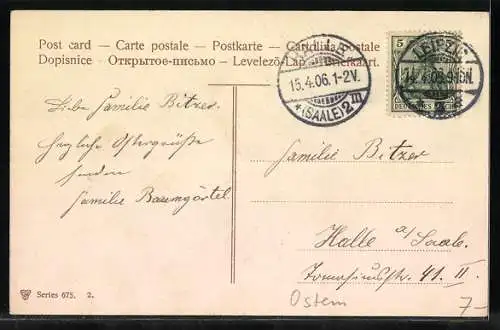 Post card — Carte postale — Postkarte — Cartolina postale
Dopisnice — Открытое-письмо — Levelező-Lap — Briefkaart.
HALLE
15.4.06.1-2V.
* (SAALE) 2 m
5
DEUTSCHES REICH
LEIPZIG
14.4.06.9-10N.
Liebe Familie Bitzer
herzliche Ostergrüße
senden
Familie Baumgärtel
Familie Bitzer
Halle a/Saale.
41. II.
Series 675. 2.
Ostern
7-